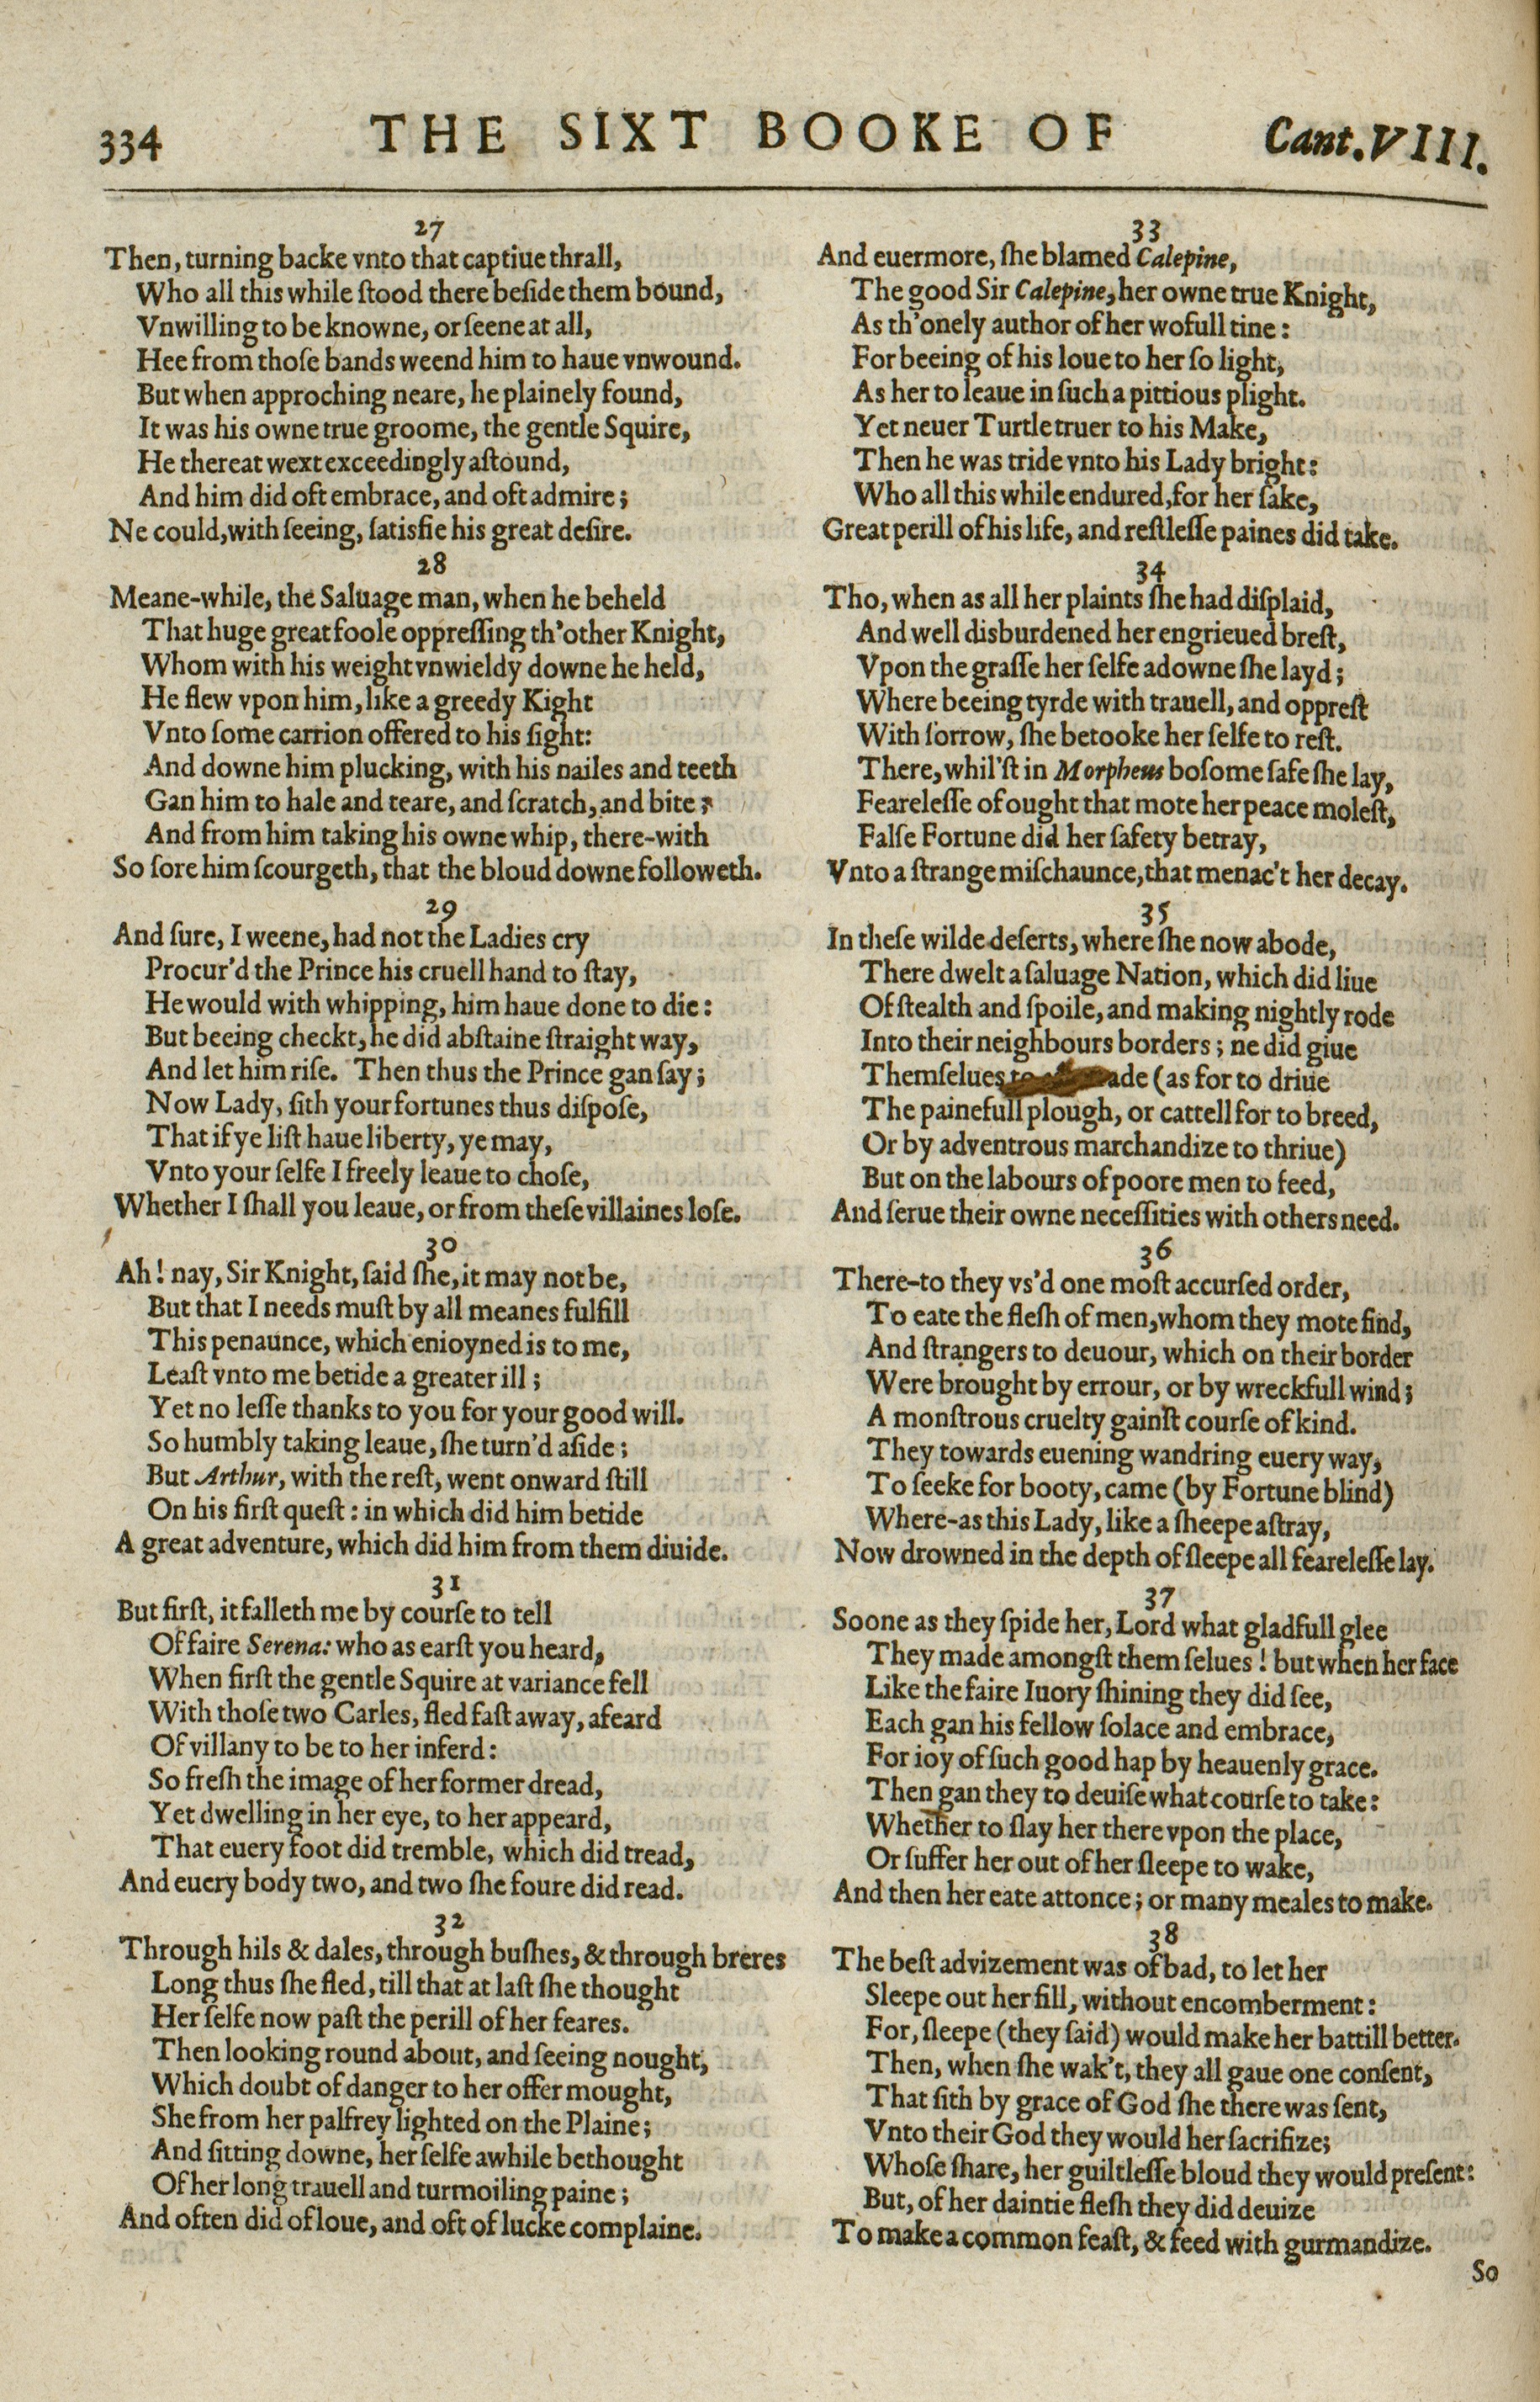 334 THE SIXT BOOKE OF Cant. VIII.
27
Then, turning backe vnto that captiue thrall,
Who all this while ſtood there beſide them bound,
Vnwilling to be knowne, or ſeene at all,
Hee from thoſe bands weend him to haue vnwound.
But when approching neare, he plainely found,
It was his owne true groome, the gentle Squire,
He thereat wext exceedingly aſtound,
And him did oft embrace, and oft admire;
Ne could, with ſeeing, ſatisfie his great deſire.
28
Meane-while, the Saluage man, when he beheld
That huge great foole oppreſſing th'other Knight,
Whom with his weight vnwieldy downe he held,
He flew vpon him, like a greedy Kight
Vnto ſome carrion offered to his ſight:
And downe him plucking, with his nailes and teeth
Gan him to hale and teare, and ſcratch, and bite;
And from him taking his owne whip, there-with
So ſore him ſcourgeth, that the bloud downe followeth.
29
And ſure, I weene, had not the Ladies cry
Procur'd the Prince his cruell hand to ſtay,
He would with whipping, him haue done to die:
But beeing checkt, he did abſtaine ſtraight way,
And let him riſe. Then thus the Prince gan ſay;
Now Lady, ſith your fortunes thus diſpoſe,
That if ye liſt haue liberty, ye may,
Vnto your ſelfe I freely leaue to choſe,
Whether I ſhall you leaue, or from theſe villaines loſe.
30
Ah! nay, Sir Knight, ſaid ſhe, it may not be,
But that I needs muſt by all meanes fulfill
This penaunce, which enioyned is to me,
Leaſt vnto me betide a greater ill;
Yet no leſſe thanks to you for your good will.
So humbly taking leaue, ſhe turn'd aſide;
But Arthur, with the reſt, went onward ſtill
On his firſt queſt: in which did him betide
A great adventure, which did him from them diuide.
31
But firſt, it falleth me by courſe to tell
Of faire Serena: who as earſt you heard,
When firſt the gentle Squire at variance fell
With thoſe two Carles, fled faſt away, afeard
Of villany to be to her inferd:
So freſh the image of her former dread,
Yet dwelling in her eye, to her appeard,
That euery foot did tremble, which did tread,
And euery body two, and two ſhe foure did read.
32
Through hils & dales, through buſhes, & through breres
Long thus ſhe fled, till that at laſt ſhe thought
Her ſelfe now paſt the perill of her feares.
Then looking round about, and ſeeing nought,
Which doubt of danger to her offer mought,
She from her palfrey lighted on the Plaine;
And ſitting downe, her ſelfe awhile bethought
Of her long trauell and turmoiling paine;
And often did of loue, and oft of lucke complaine.
33
And euermore, ſhe blamed Calepine,
The good Sir Calepine, her owne true Knight,
As th'onely author of her wofull tine:
For beeing of his loue to her ſo light,
As her to leaue in ſuch a pittious plight.
Yet neuer Turtle truer to his Make,
Then he was tride vnto his Lady bright:
Who all this while endured, for her ſake,
Great perill of his life, and reſtleſſe paines did take.
34
Tho, when as all her plaints ſhe had diſplaid,
And well disburdened her engrieued breſt,
Vpon the graſſe her ſelfe adowne ſhe layd;
Where beeing tyrde with trauell, and oppreſt
With ſorrow, ſhe betooke her ſelfe to reſt.
There, whil'ſt in Morpheus boſome ſafe ſhe lay,
Feareleſſe of ought that mote her peace moleſt,
Falſe Fortune did her ſafety betray,
Vnto a ſtrange miſchaunce, that menac't her decay.
35
In theſe wilde deſerts, where ſhe now abode,
There dwelt a ſaluage Nation, which did liue
Of ſtealth and ſpoile, and making nightly rode
Into their neighbours borders; ne did giue
Themſelues to ade (as for to driue
The painefull plough, or cattell for to breed,
Or by adventrous marchandize to thriue)
But on the labours of poore men to feed,
And ſerue their owne neceſſities with others need.
36
There-to they vs'd one moſt accurſed order,
To eate the fleſh of men, whom they mote find,
And ſtrangers to deuour, which on their border
Were brought by errour, or by wreckfull wind;
A monſtrous cruelty gainſt courſe of kind.
They towards euening wandring euery way,
To ſeeke for booty, came (by Fortune blind)
Where-as this Lady, like a ſheepe aſtray,
Now drowned in the depth of ſleepe all feareleſſe lay.
37
Soone as they ſpide her, Lord what gladfull glee
They made amongſt them ſelues! but when her face
Like the faire Iuory ſhining they did ſee,
Each gan his fellow ſolace and embrace,
For ioy of ſuch good hap by heauenly grace.
Then gan they to deuiſe what courſe to take:
Whether to ſlay her there vpon the place,
Or ſuffer her out of her ſleepe to wake,
And then her eate attonce; or many meales to make.
38
The beſt advizement was of bad, to let her
Sleepe out her fill, without encomberment:
For, ſleepe (they ſaid) would make her battill better.
Then, when ſhe wak't, they all gaue one conſent,
That ſith by grace of God ſhe there was ſent,
Vnto their God they would her ſacrifize;
Whoſe ſhare, her guiltleſſe bloud they would preſent:
But, of her daintie fleſh they did deuize
To make a common feaſt, & feed with gurmandize.
So